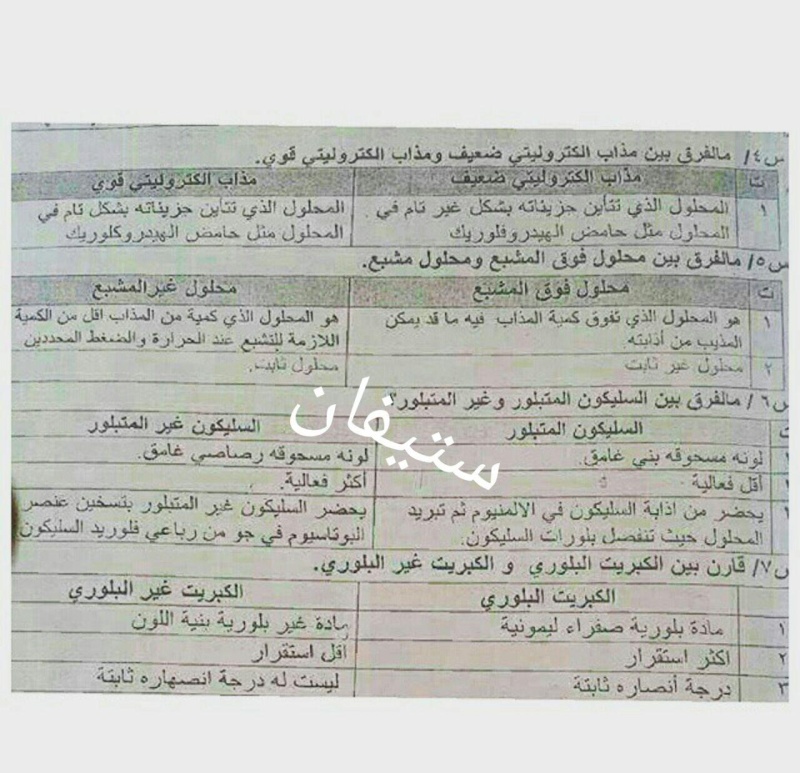 س٤/ مالفرق بين مذاب الكتروليتي ضعيف ومذاب الكتروليتي قوي.
ت مذاب الكتروليتي ضعيف مذاب الكتروليتي قوي
١ المحلول الذي تتأين جزيئاته بشكل غير تام في المحلول الذي تتأين جزيئاته بشكل تام في
المحلول مثل حامض الهيدروفلوريك المحلول مثل حامض الهيدروكلوريك
س٥/ مالفرق بين محلول فوق المشبع ومحلول مشبع.
ت محلول فوق المشبع محلول غيرالمشبع
١ هو المحلول الذي تفوق كمية المذاب فيه ما قد يمكن هو المحلول الذي كمية من المذاب اقل من الكمية
المذيب من أذابته. اللازمة للتشبع عند الحرارة والضغط المحددين
٢ محلول غير ثابت محلول ثابت.
س٦/ مالفرق بين السليكون المتبلور وغير المتبلور؟
ت السليكون المتبلور السليكون غير المتبلور
لونه مسحوقه بني غامق. لونه مسحوقه رصاصي غامق.
أقل فعالية أكثر فعالية.
يحضر من اذابة السليكون في الالمنيوم ثم تبريد يحضر السليكون غير المتبلور بتسخين عنصر
المحلول حيث تنفصل بلورات السليكون. البوتاسيوم في جو من رباعي فلوريد السليكون
ستيفان
س٧/ قارن بين الكبريت البلوري و الكبريت غير البلوري.
الكبريت البلوري الكبريت غير البلوري
١ مادة بلورية صفراء ليمونية مادة غير بلورية بنية اللون
٢ اكثر استقرار اقل استقرار
٣ درجة أنصاره ثابتة ليست له درجة انصهاره ثابتة